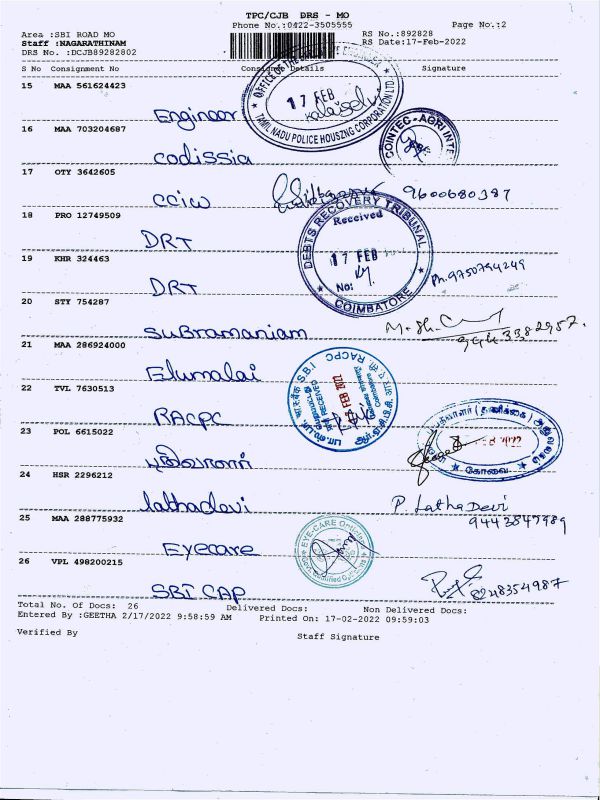 TPC/CJB DRS - MO
Phone No.:0422-3505555
Page No.:2
Area :SBI ROAD MO
RS No.:892828
Staff :NAGARATHINAM
RS Date:17-Feb-2022
DRS No. :DCJB89282802
S No Consignment No Consignee Details Signature
15 MAA 561624423
Engineer
OFFICE OF THE EXECUTIVE ENGINEER
17 FEB
Kalaiselvi
TAMIL NADU POLICE HOUSZNG CORPORATION LTD.
16 MAA 703204687
codissia
COINTEC-AGRI INTE
17 OTY 3642605
CCIW
9600680387
18 PRO 12749509
DRT
DEBTS RECOVERY TRIBUNAL
Received
17 FEB
No:
COIMBATORE
19 KHR 324463
DRT
Ph.9750794249
20 STY 754287
SUBRAMANIAM
9443382957.
21 MAA 286924000
Elumalai
22 TVL 7630513
RACPC
S.B.I. RACPC
RECEIVED
FEB 2022
23 POL 6615022
(தணிக்கை)
கோவை
24 HSR 2296212
lathadevi
P. Latha Devi
9443847989
25 MAA 288775932
Eyecare
EYE-CARE Opticians
26 VPL 498200215
SBI CAP
8248354987
Total No. Of Docs: 26 Delivered Docs: Non Delivered Docs:
Entered By :GEETHA 2/17/2022 9:58:59 AM Printed On: 17-02-2022 09:59:03
Verified By Staff Signature